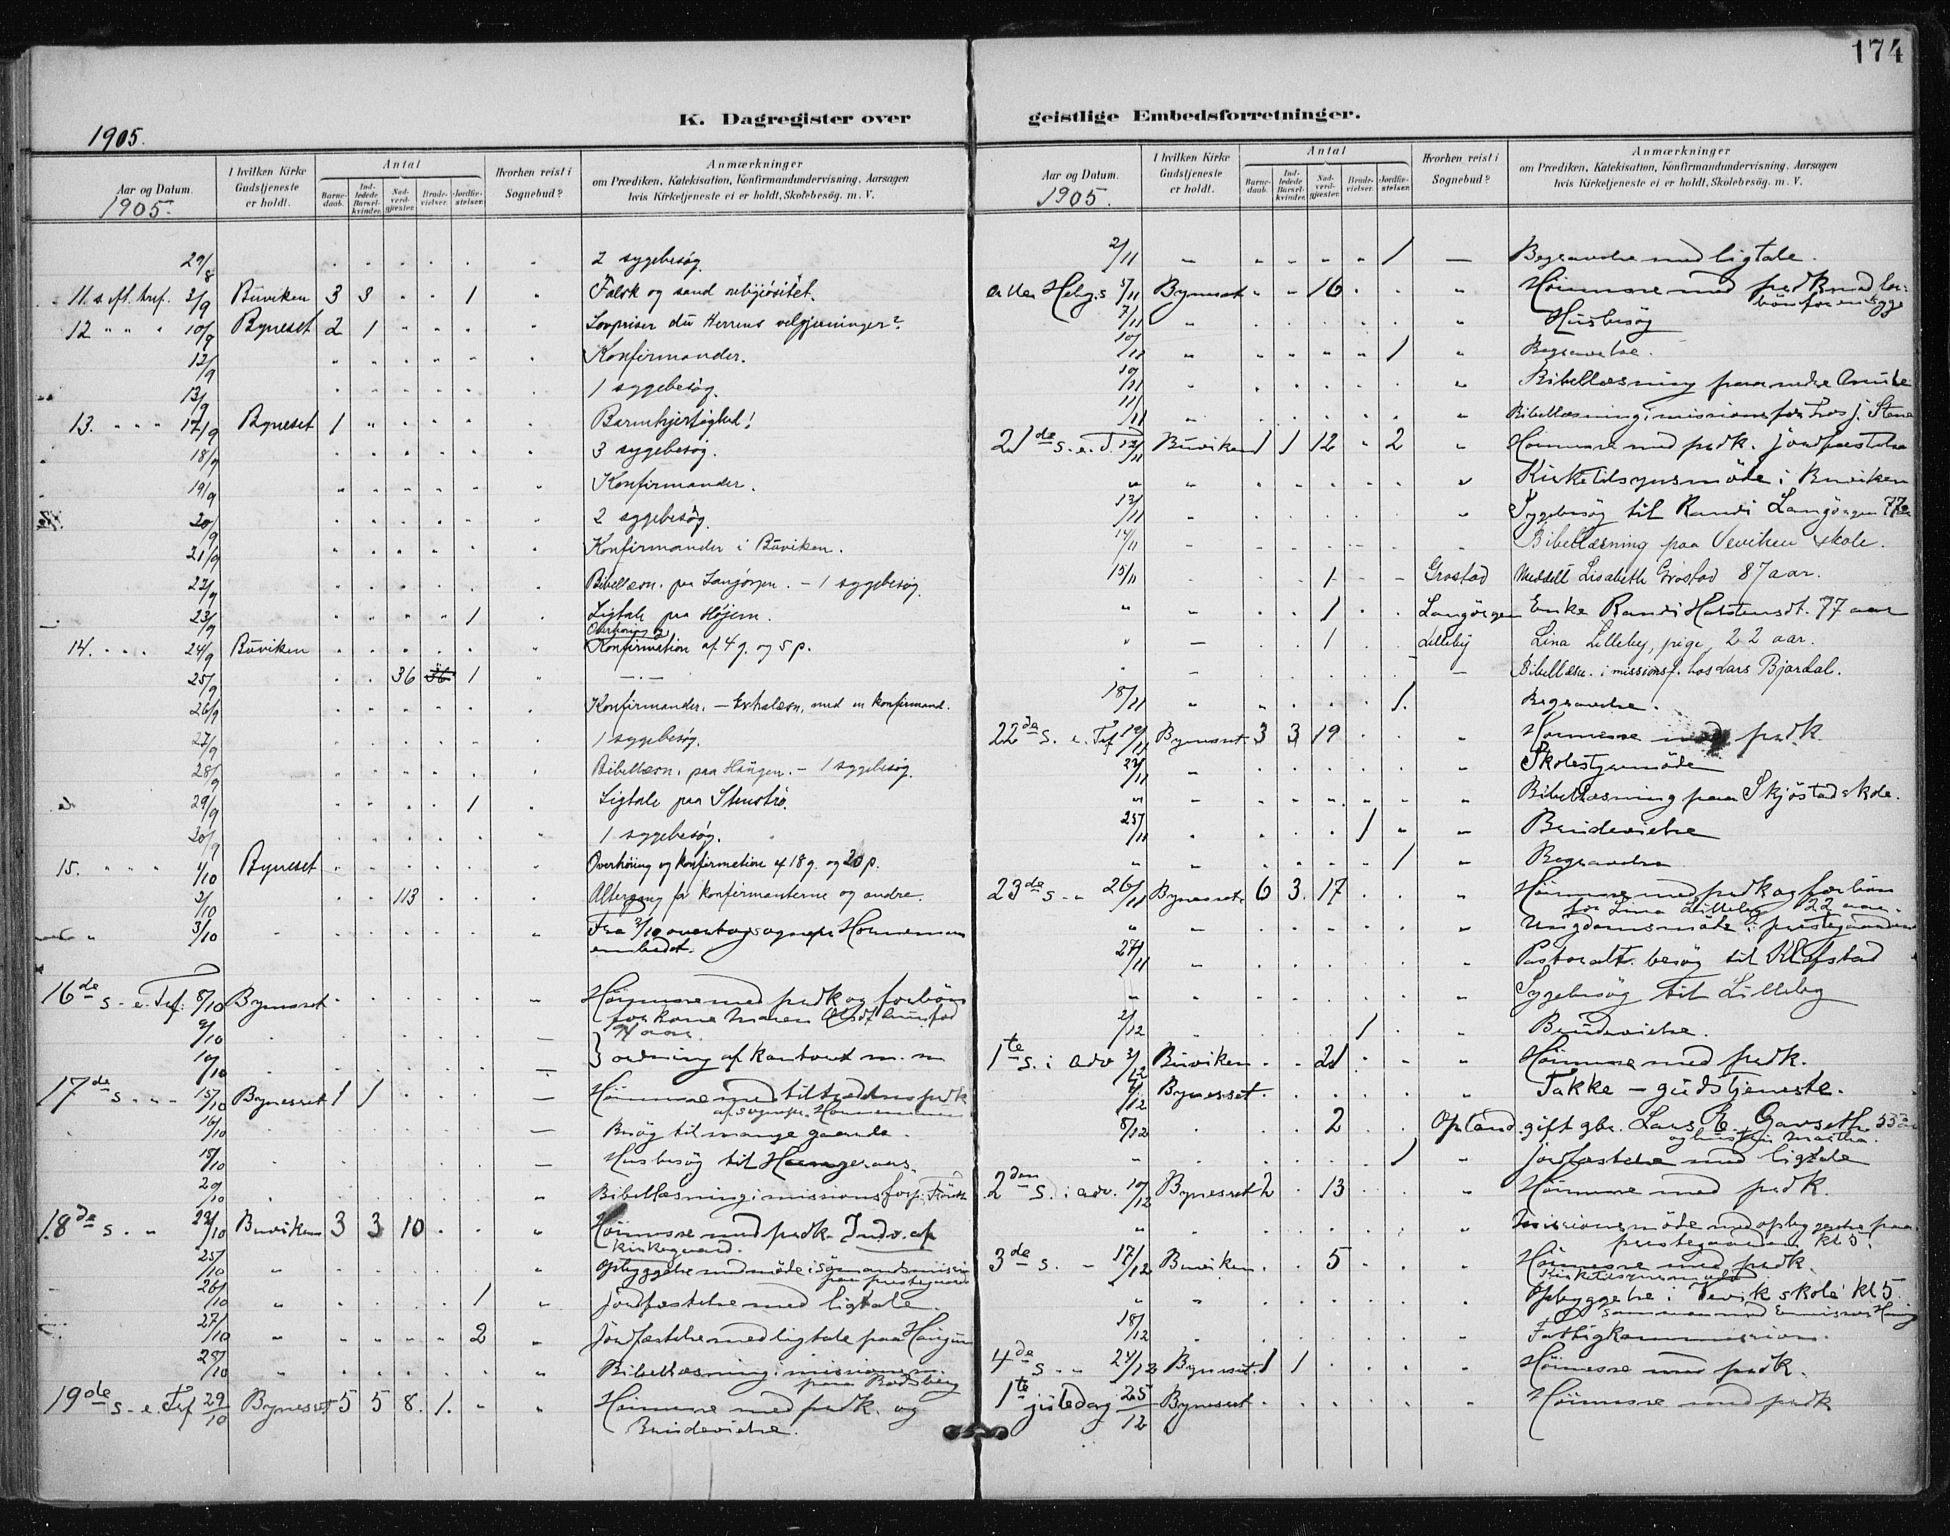 174
K. Dagregister over geistlige Embedsforretninger.
1905.
Aar og Datum. 1905.
I hvilken Kirke Gudstjeneste er holdt.
Antal
Barne-daab.
Ind-ledede Barsel-kvinder.
Nad-verd-gjester.
Brude-vielser.
Jordfæ-stelser.
Hvorhen reist i Sognebud?
Anmærkninger
om Prædiken, Katekisation, Konfirmandundervisning, Aarsagen
hvis Kirketjeneste ei er holdt, Skolebesøg. m. V.
29/8 2 sygebesøg.
11. s. eft. tref. 3/9 Büviken 3 3 1 Falsk og sand religiøsitet.
12 " " " 10/9 Byneset 2 1 Lovpriser du Herrens velgjerninger?
12/9 Konfirmander.
13/9 1 sygebesøg.
13. " " " 17/9 Byneset 1 Barmhjertighed!
18/9 3 sygebesøg.
19/9 Konfirmander.
20/9 2 sygebesøg.
21/9 Konfirmander i Büviken.
22/9 Bibellæsn. paa Langørgen. – 1 sygebesøg.
23/9 1 Ligtale paa Højem.
14. " " " 24/9 Büviken Overhøring og
Konfirmation af 4 g. og 5 p.
25/9 36 36 1 — . —
26/9 Konfirmander. – Extralæsn. med en konfirmand.
27/9 1 sygebesøg.
28/9 Bibellæsn. paa Haugen. – 1 sygebesøg.
29/9 1 Ligtale paa Stenstrø.
30/9 1 sygebesøg.
15. " " " 1/10 Byneset Overhøring og konfirmation af 18 g. og 20 p.
2/10 113 Altergang for konfirmanterne og andre.
3/10 Fra 3/10 overtog sognepr. Hornemann
embedet.
16de s. e. Tref. 8/10 Bynesset Høimesse med prædk og forbøn
for kone Maren
9/10
10/10 ordning af kontoret m. m
17de s. " " 15/10 Bynesset 1 1 Høimesse med tiltrædelses prædk
af sognepr. Hornemann
16/10 Besøg til mange gaarde.
18/10 Husbesøg til
20/10 Bibellæsning i missionsforp.
18de s. " 22/10 Buviken 3 3 10 Høimesse med prædk. Indv. af
kirkegaard.
25/10 Opbyggelse med møde i sømandsmission
paa prestegaard
26/10 1 Jordfæstelse med ligtale.
27/10 2 Jordfæstelse med ligtale paa Haugen
28/10 Bibellæsning i
paa Rødsberg
19de s. e. Tref 29/10 Bynesset 5 5 8. 1. Høimesse med prædk. og
Brudevielse.
Aar og Datum. 1905.
I hvilken Kirke Gudstjeneste er holdt.
Antal
Barne-daab.
Ind-ledede Barsel-kvinder.
Nad-verd-gjester.
Brude-vielser.
Jordfæ-stelser.
Hvorhen reist i Sognebud?
Anmærkninger
om Prædiken, Katekisation, Konfirmandundervisning, Aarsagen
hvis Kirketjeneste ei er holdt. Skolebesøg. m. V.
2/11 1 Begravelse med ligtale.
Alle Helg.s 5/11 Bynesset 16 Høimesse med prædk med for-
bøn for en syg
7/11 Husbesøg
10/11 1 Begravelse.
10/11 Bibellæsning paa
11/11 Bibellæsning i missionsfor.
21de s. e. T. 12/11 Büviken 1 1 12 2 Høimesse med prædk. jordfæstelse
" Kirketilsynsmøde i Buviken
13/11 Sygebesøg til Randi Langørgen 77
14/11 Bibellæsning paa Veviken skole.
15/11 1 Grostad Meddelt Lisabeth Grostad 87 aar.
" 1 Langørgen Enke Randi Halstensdt. 77 aar
" 1 Lilleby Lina Lilleby, pige 22 aar.
Bibellæsn. i missionsf. hos Lars Bjørdal.
18/11 1. Begravelse.
22de s. e. Tref 19/11 Bynesset 3 3 19 Høimesse med prædk
Skolestyremøde
" Bibellæsning paa Skjøstad skole.
25/11 1 Brudevielse
" 1 Begravelse
23de s. " 26/11 Bynesset 6 3. 17 Høimesse med prædk og forbøn
for Lina Lilleby 22 aar.
" Ungdomsmøde i prestegaarden
27/11 Pastoralt. besøg til Klefstad
" Sygebesøg til Lilleby
2/12 1 Brudevielse.
1te s. i Adv 3/12 Büviken 21 Høimesse med prædk.
Bynesset. Takke – gudstjeneste.
8/12 2 Opland gift gbr. Lars E. Gavseth 53
og hustru Martha.
" 1 Jordfæstelse med ligtale
2den s. i adv. 10/12 Bynesset 2 13 Høimesse med prædk.
" Missionsmøde med opbyggelse paa
prestegaarden kl 5.
3de s. " 17/12 Buviken 5 Høimesse med prædk.
Kirketilsynsmøde
" Opbyggelse i Vevik skole kl 5
sammen med Emissær
18/12 Fattigkommission.
4de s. " 24/12 Bynesset. 1 1 Høimesse med prædk.
1te juledag 25/12 Bynesset Høimesse med prædk